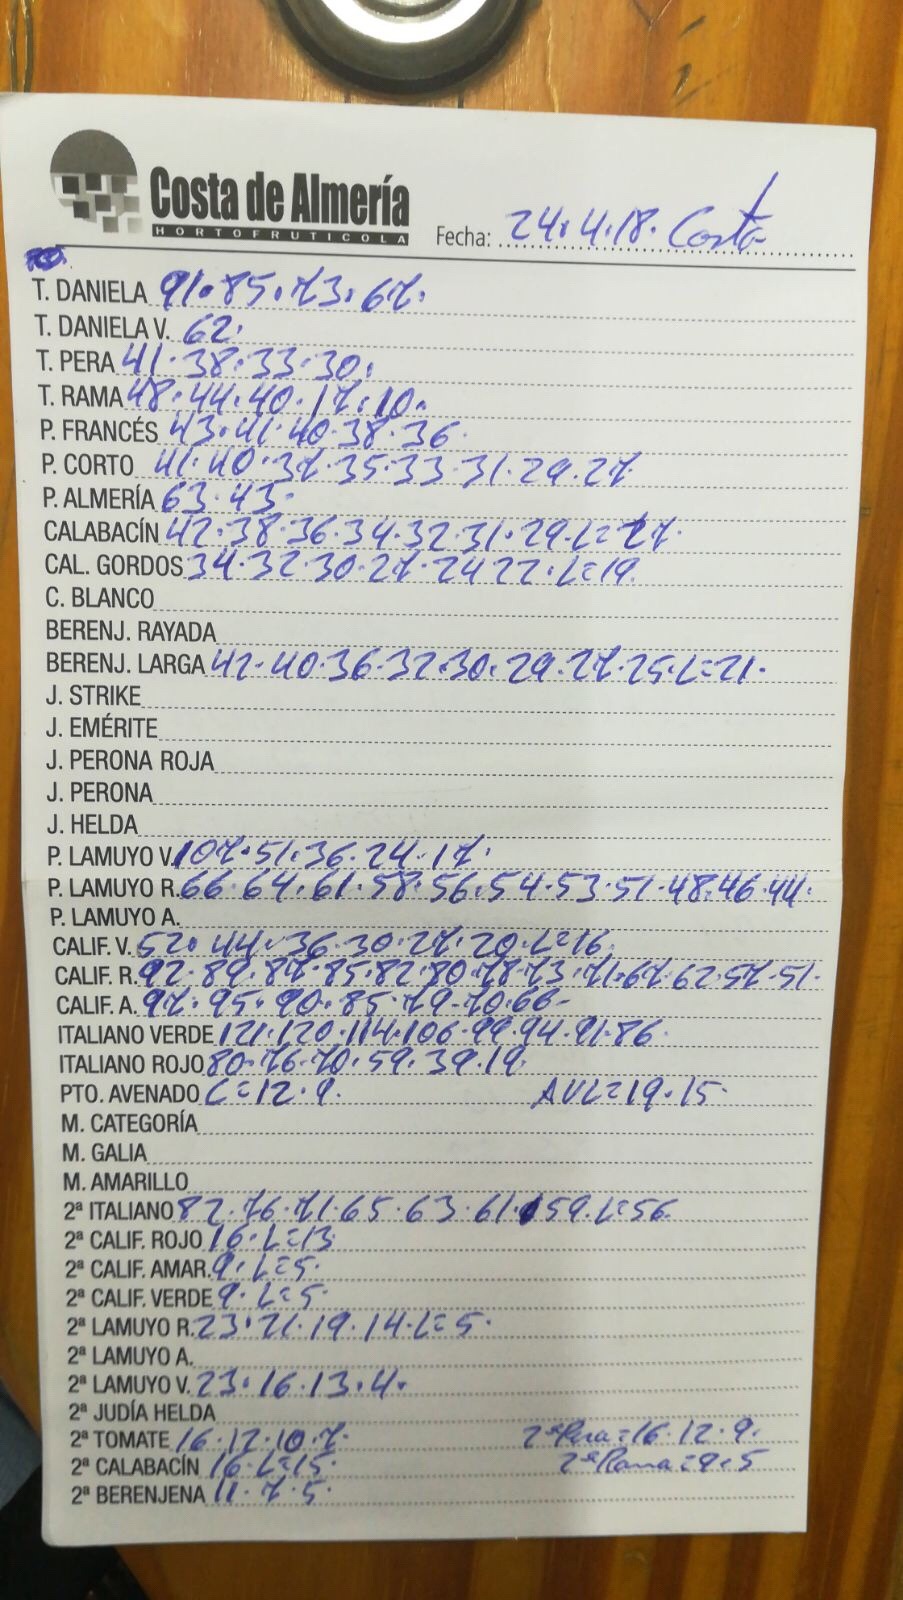 Costa de Almería
HORTOFRUTICOLA
Fecha: 24.4.18. Costa
T. DANIELA 91.85.73.67.
T. DANIELA V. 62.
T. PERA 41.38.33.30.
T. RAMA 48.44.40.17.10.
P. FRANCÉS 43.41.40.38.36.
P. CORTO 41.40.37.35.33.31.29.27
P. ALMERÍA 63.43.
CALABACÍN 42.38.36.34.32.31.29.L=27.
CAL. GORDOS 34.32.30.27.24 22.L=19.
C. BLANCO
BERENJ. RAYADA
BERENJ. LARGA 42.40.36.32.30.29.27.25.L=21.
J. STRIKE
J. EMÉRITE
J. PERONA ROJA
J. PERONA
J. HELDA
P. LAMUYO V. 107.51.36.24.17.
P. LAMUYO R. 66.64.61.58.56.54.53.51.48.46.44.
P. LAMUYO A.
CALIF. V. 52.44.36.30.27.20.L=16.
CALIF. R. 92.89.87.85.82.80.78.73.71.67.62.57.51.
CALIF. A. 97.95.90.85.79.70.66.
ITALIANO VERDE 121.120.114.106.99.94.91.86.
ITALIANO ROJO 80.76.70.59.39.19.
PTO. AVENADO L=12.9. AVL=19.15.
M. CATEGORÍA
M. GALIA
M. AMARILLO
2ª ITALIANO 82.76.71.65.63.61.59.L=56.
2ª CALIF. ROJO 16.L=13
2ª CALIF. AMAR. 9.L=5.
2ª CALIF. VERDE 9.L=5.
2ª LAMUYO R. 23.21.19.14.L=5.
2ª LAMUYO A.
2ª LAMUYO V. 23.16.13.4.
2ª JUDÍA HELDA
2ª TOMATE 16.12.10.7. 2ªPera=16.12.9.
2ª CALABACÍN 16.L=15. 2ªRama=9.5
2ª BERENJENA 11.7.5.